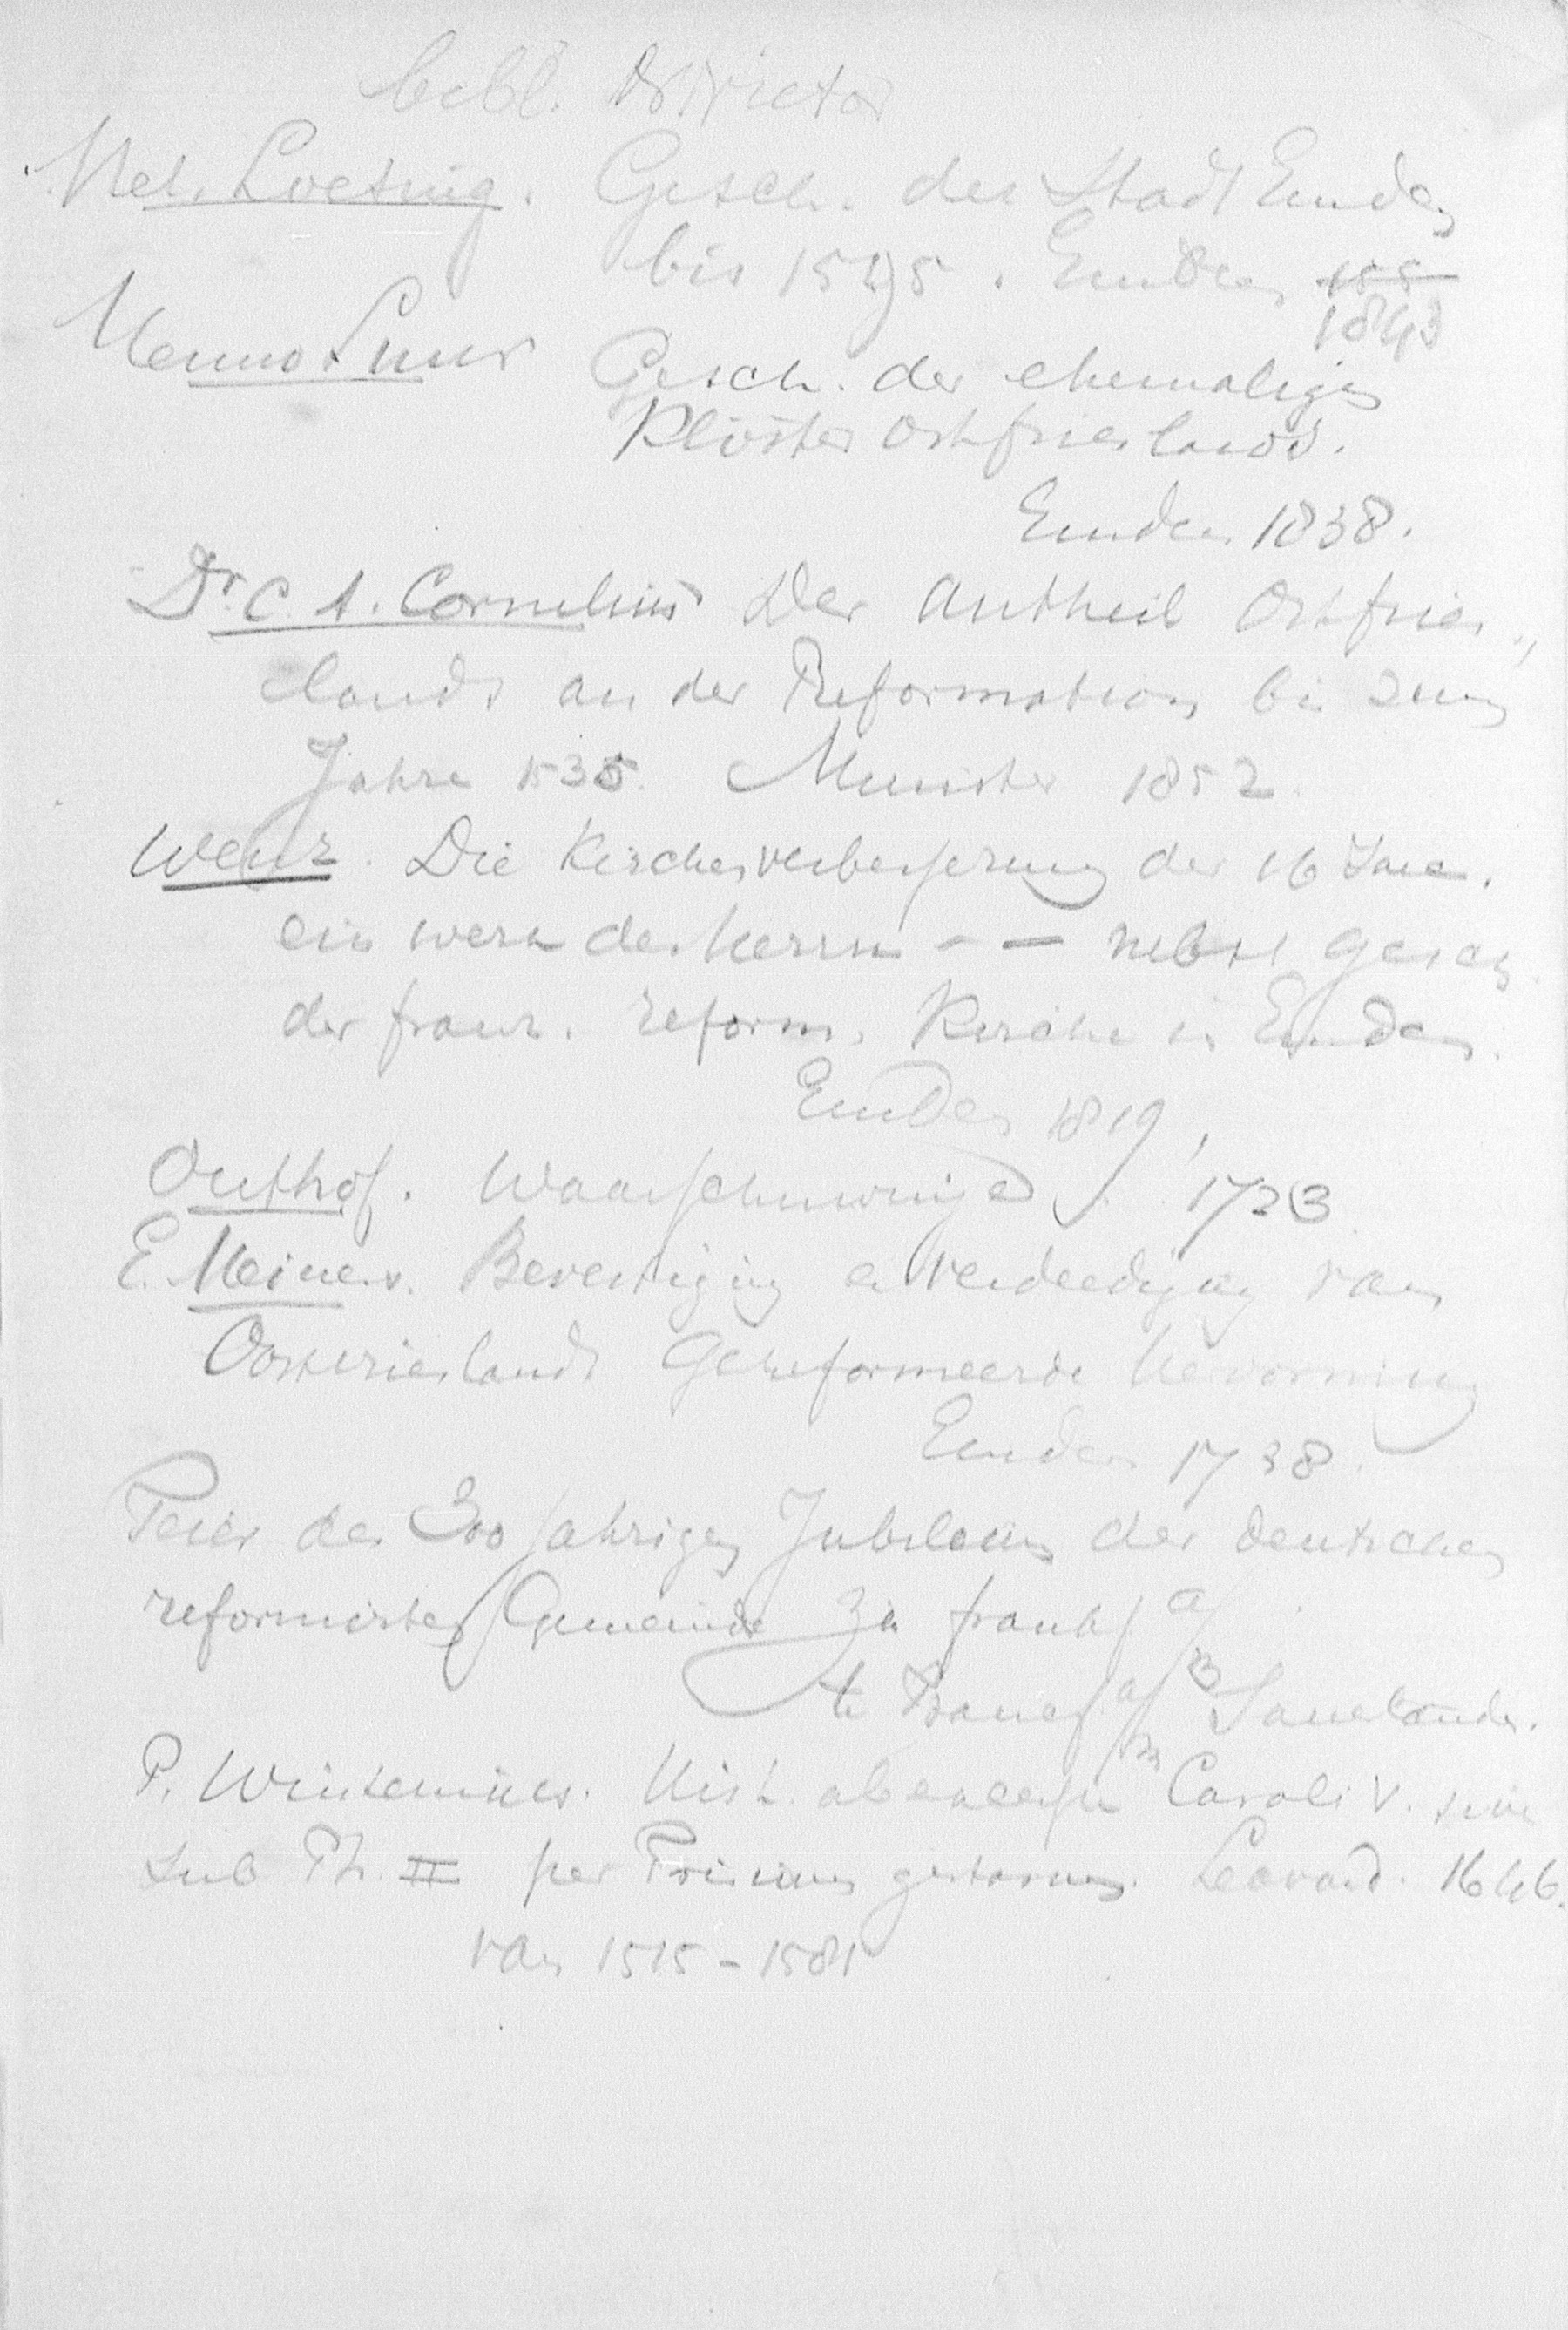 bibl. Dr Victor
Mel. Loesing. Gesch. der Stadt Emden
bis 1595. Emden 155
1843
Menno Suur Gesch. der ehemaligen
Klöster Ostfrieslands.
Emden 1838.
Dr. C. A. Cornelius Der Antheil Ostfries„
lands an der Reformation bis zum
Jahre 1535. Munster 1852.
Wenz. Die Kirchenverbesserung der 16
ein werk des Herrn - — nebst Gesch
der franz. reform. Kirche in Emden.
Emden 1819,
Outhof. Waarschuwinge 1723
E. Meiners. Bevestiging en verdeediging van
Oostvrieslands Gereformeerde Hervorming
Emden 1738.
Feier des 300 jahrigen Jubilaums der deutschen
reformirten Gemeinde zu frankf a/
te Francf a/m Sauerlander.
P. Winsemius. Hist. ab excessu Caroli V. sive
sub Ph. II per Frisiam gestarum. Leovard. 1646.
van 1515 - 1581